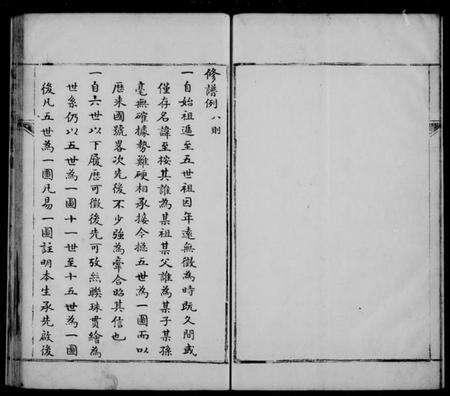 修譜例八則
一自始祖進至五世祖因年遠無徵為時既久間或
僅存名諱至按其誰為某祖某父誰為某子某孫
毫無確據勢難硬相承接今總五世為一圖而以
歷來國號畧次先後不少強為牽合昭其信也
一自六世以下履歷可徵後先可攷絲聯珠貫繪為
世系仍以五世為一圖十一世至十五世為一圖
後凡五世為一圖凡易一圖註明本生承先啟後